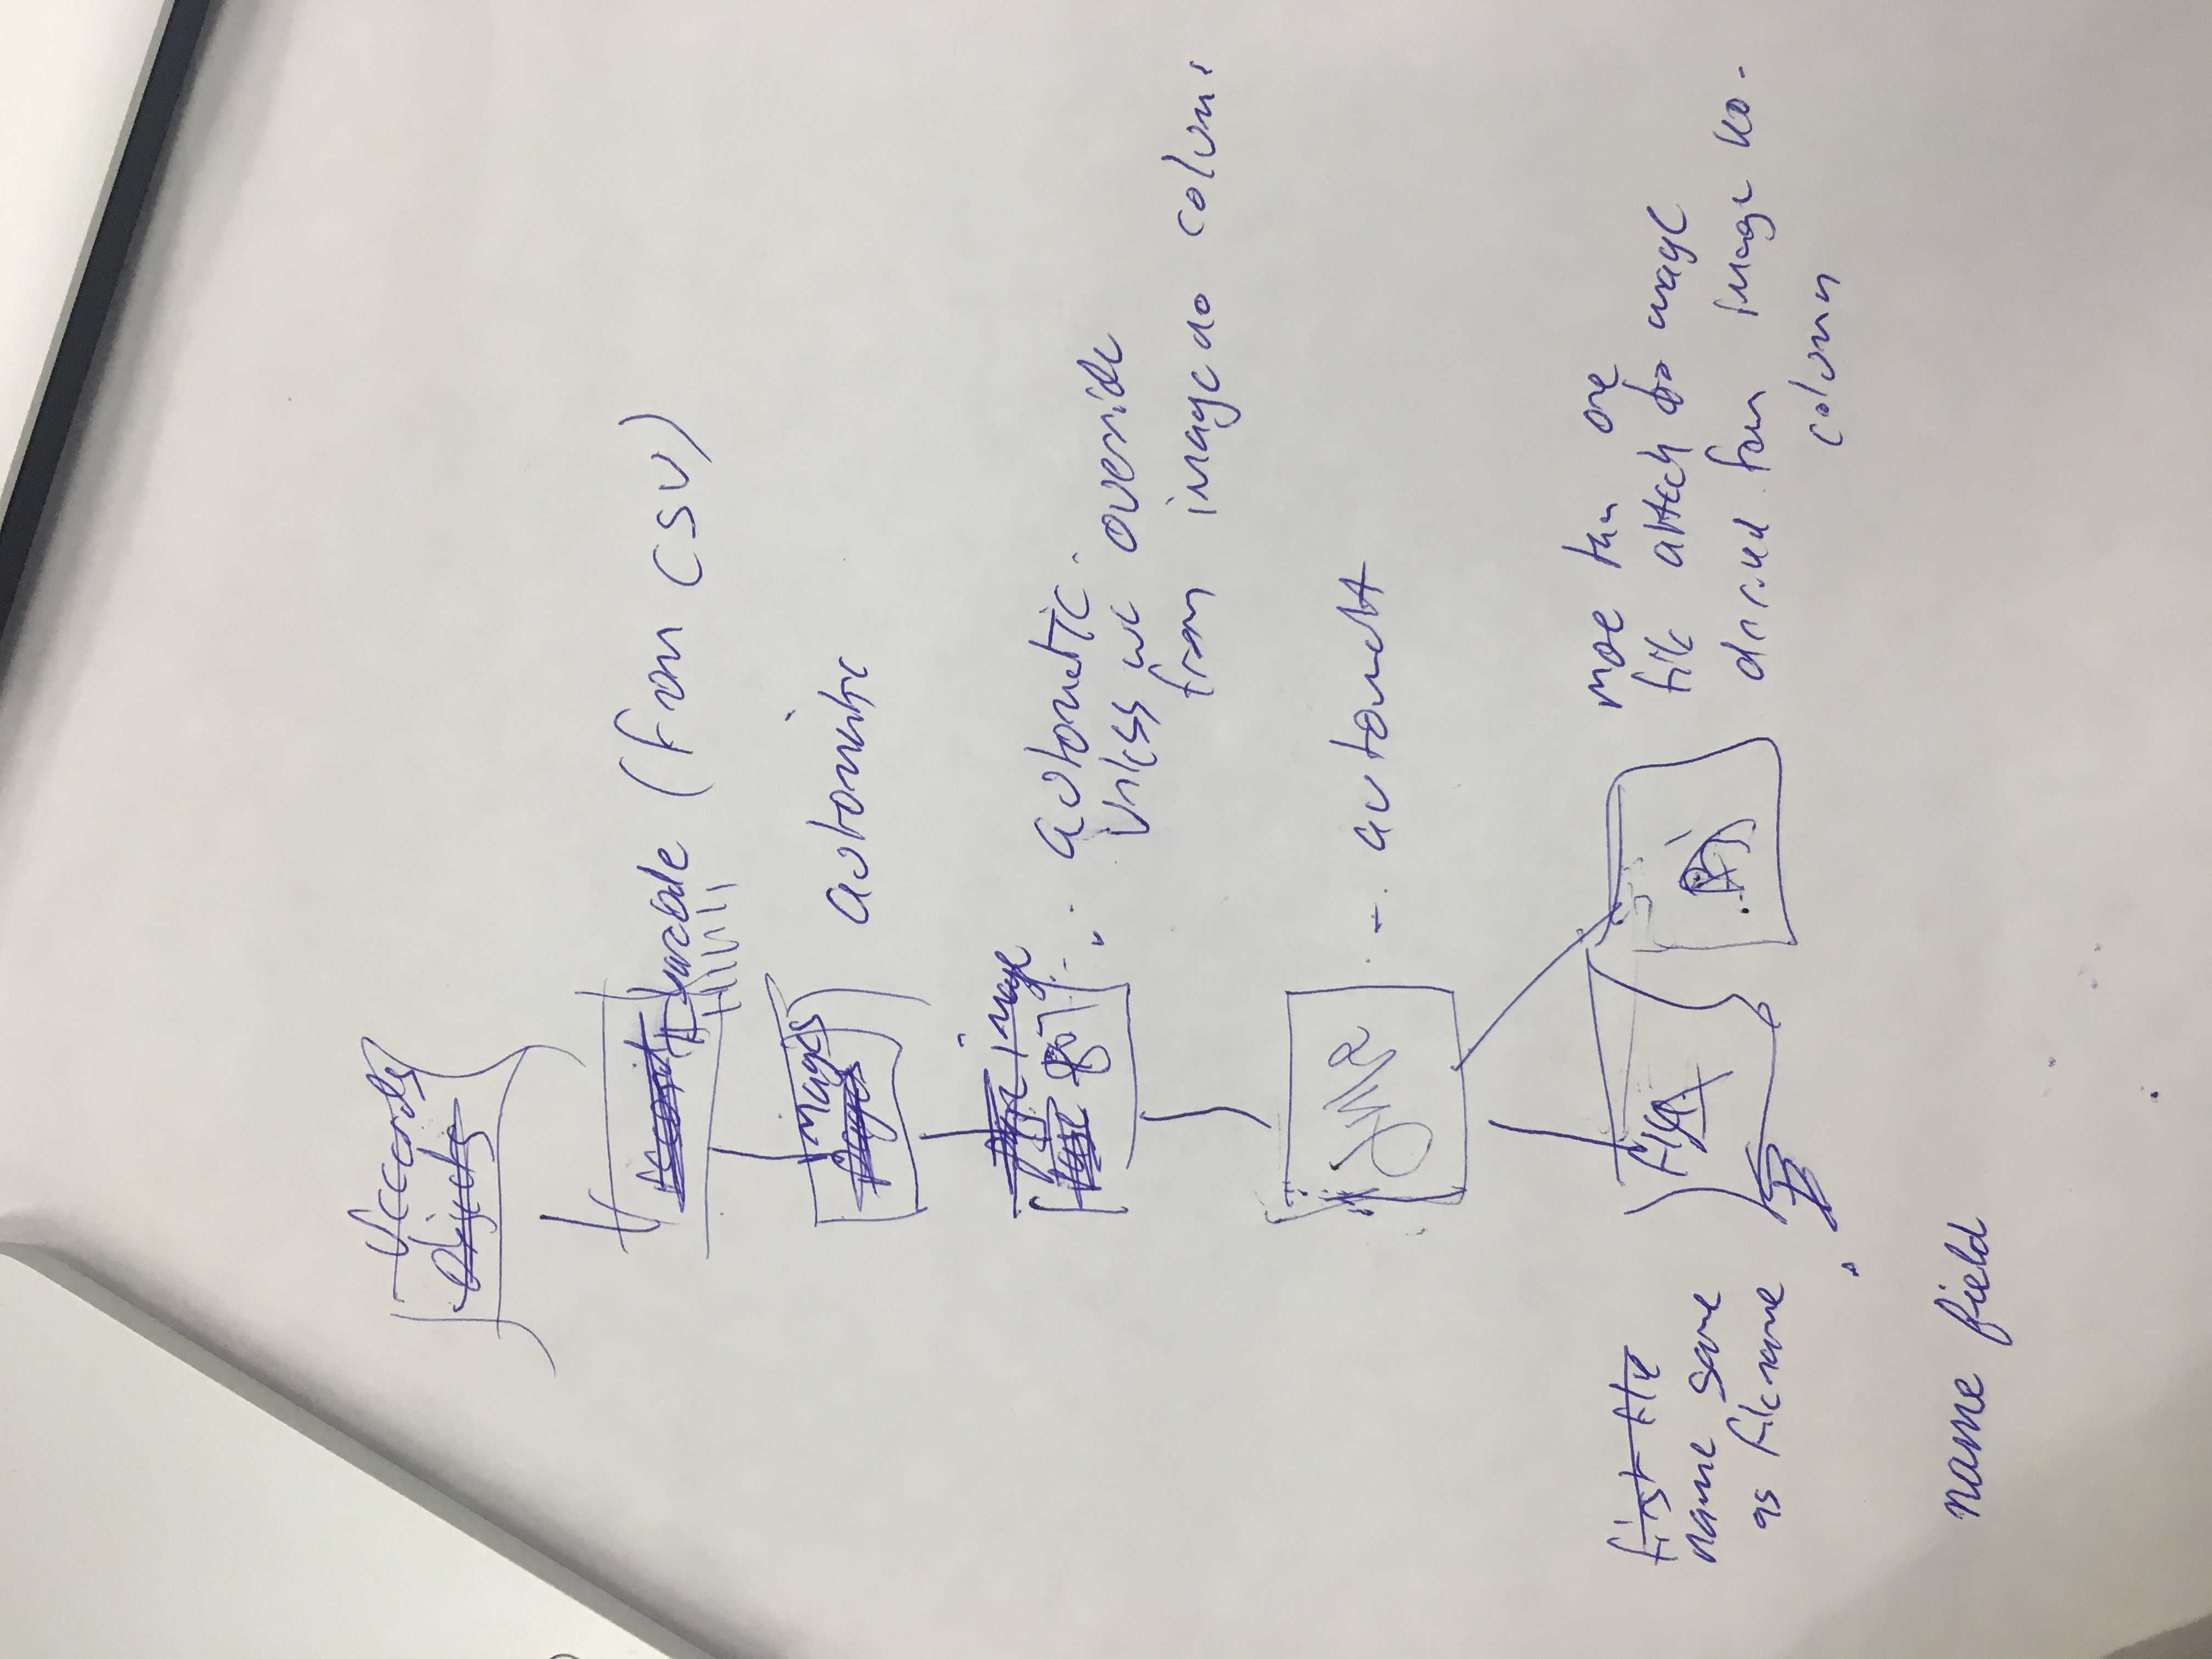 records
objects
barcode (from CSV)
images
pages
automatic
image
automatic.
Unless we override
from image no column
first file
name same
as filename
file A
B
more than one
file attach to image
derived from image no.
column
name field